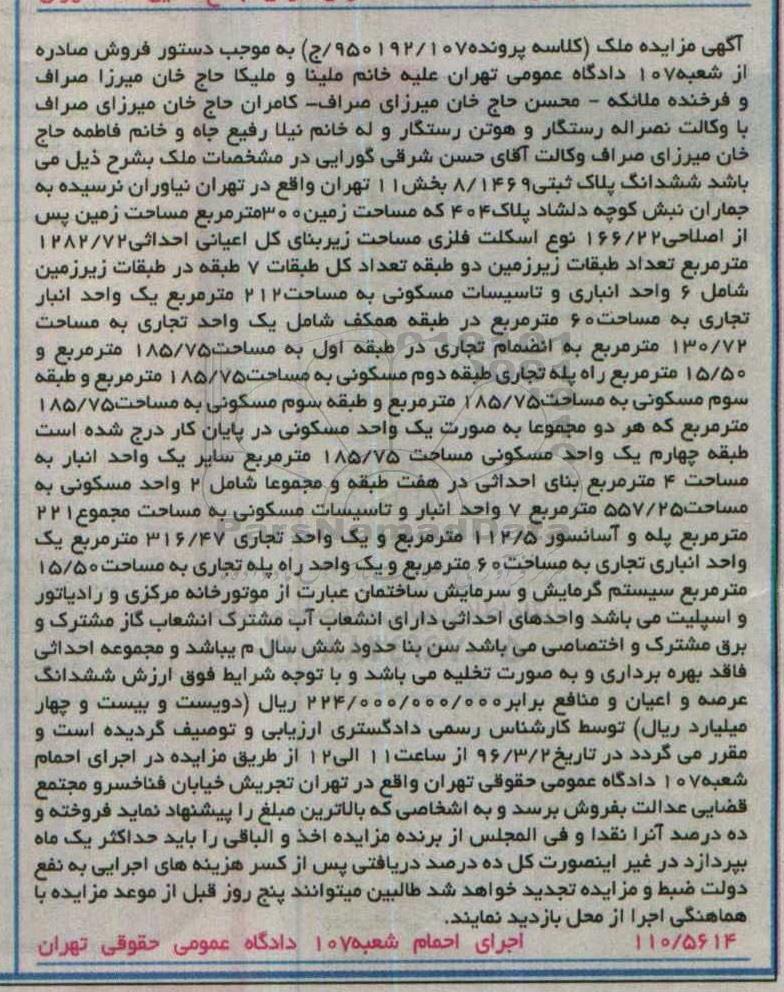 آگهی مزایده ملک (کلاسه پرونده۹۵۰۱۹۲/۱۰۷/ج) به موجب دستور فروش صادره
از شعبه۱۰۷ دادگاه عمومی تهران علیه خانم ملینا و ملیکا حاج خان میرزا صراف
و فرخنده ملائکه - محسن حاج خان میرزای صراف- کامران حاج خان میرزای صراف
با وکالت نصراله رستگار و هوتن رستگار و له خانم نیلا رفیع جاه و خانم فاطمه حاج
خان میرزای صراف وکالت آقای حسن شرقی گورایی در مشخصات ملک بشرح ذیل می
باشد ششدانگ پلاک ثبتی۸/۱۴۶۹ بخش۱۱ تهران واقع در تهران نیاوران نرسیده به
جماران نبش کوچه دلشاد پلاک۴۰۴ که مساحت زمین۳۰۰مترمربع مساحت زمین پس
از اصلاحی۱۶۶/۲۲ نوع اسکلت فلزی مساحت زیربنای کل اعیانی احداثی۱۲۸۲/۷۲
مترمربع تعداد طبقات زیرزمین دو طبقه تعداد کل طبقات ۷ طبقه در طبقات زیرزمین
شامل ۶ واحد انباری و تاسیسات مسکونی به مساحت۲۱۲ مترمربع یک واحد انبار
تجاری به مساحت۶۰ مترمربع در طبقه همکف شامل یک واحد تجاری به مساحت
۱۳۰/۷۲ مترمربع به انضمام تجاری در طبقه اول به مساحت۱۸۵/۷۵ مترمربع و
۱۵/۵۰ مترمربع راه پله تجاری طبقه دوم مسکونی به مساحت۱۸۵/۷۵ مترمربع و طبقه
سوم مسکونی به مساحت۱۸۵/۷۵ مترمربع و طبقه سوم مسکونی به مساحت۱۸۵/۷۵
مترمربع که هر دو مجموعا به صورت یک واحد مسکونی در پایان کار درج شده است
طبقه چهارم یک واحد مسکونی مساحت ۱۸۵/۷۵ مترمربع سایر یک واحد انبار به
مساحت ۴ مترمربع بنای احداثی در هفت طبقه و مجموعا شامل ۲ واحد مسکونی به
مساحت۵۵۷/۲۵ مترمربع ۷ واحد انبار و تاسیسات مسکونی به مساحت مجموع۲۲۱
مترمربع پله و آسانسور ۱۱۲/۵ مترمربع و یک واحد تجاری ۳۱۶/۴۷ مترمربع یک
واحد انباری تجاری به مساحت۶۰ مترمربع و یک واحد راه پله تجاری به مساحت۱۵/۵۰
مترمربع سیستم گرمایش و سرمایش ساختمان عبارت از موتورخانه مرکزی و رادیاتور
و اسپلیت می باشد واحدهای احداثی دارای انشعاب آب مشترک انشعاب گاز مشترک و
برق مشترک و اختصاصی می باشد سن بنا حدود شش سال م یباشد و مجموعه احداثی
فاقد بهره برداری و به صورت تخلیه می باشد و با توجه شرایط فوق ارزش ششدانگ
عرصه و اعیان و منافع برابر۲۲۴/۰۰۰/۰۰۰/۰۰۰ ریال (دویست و بیست و چهار
میلیارد ریال) توسط کارشناس رسمی دادگستری ارزیابی و توصیف گردیده است و
مقرر می گردد در تاریخ۹۶/۳/۲ از ساعت۱۱ الی۱۲ از طریق مزایده در اجرای احمام
شعبه۱۰۷ دادگاه عمومی حقوقی تهران واقع در تهران تجریش خیابان فناخسرو مجتمع
قضایی عدالت بفروش برسد و به اشخاصی که بالاترین مبلغ را پیشنهاد نماید فروخته و
ده درصد آنرا نقدا و فی المجلس از برنده مزایده اخذ و الباقی را باید حداکثر یک ماه
بپردازد در غیر اینصورت کل ده درصد دریافتی پس از کسر هزینه های اجرایی به نفع
دولت ضبط و مزایده تجدید خواهد شد طالبین میتوانند پنج روز قبل از موعد مزایده با
هماهنگی اجرا از محل بازدید نمایند.
۱۱۰/۵۶۱۴ اجرای احمام شعبه۱۰۷ دادگاه عمومی حقوقی تهران
ParsNamadData